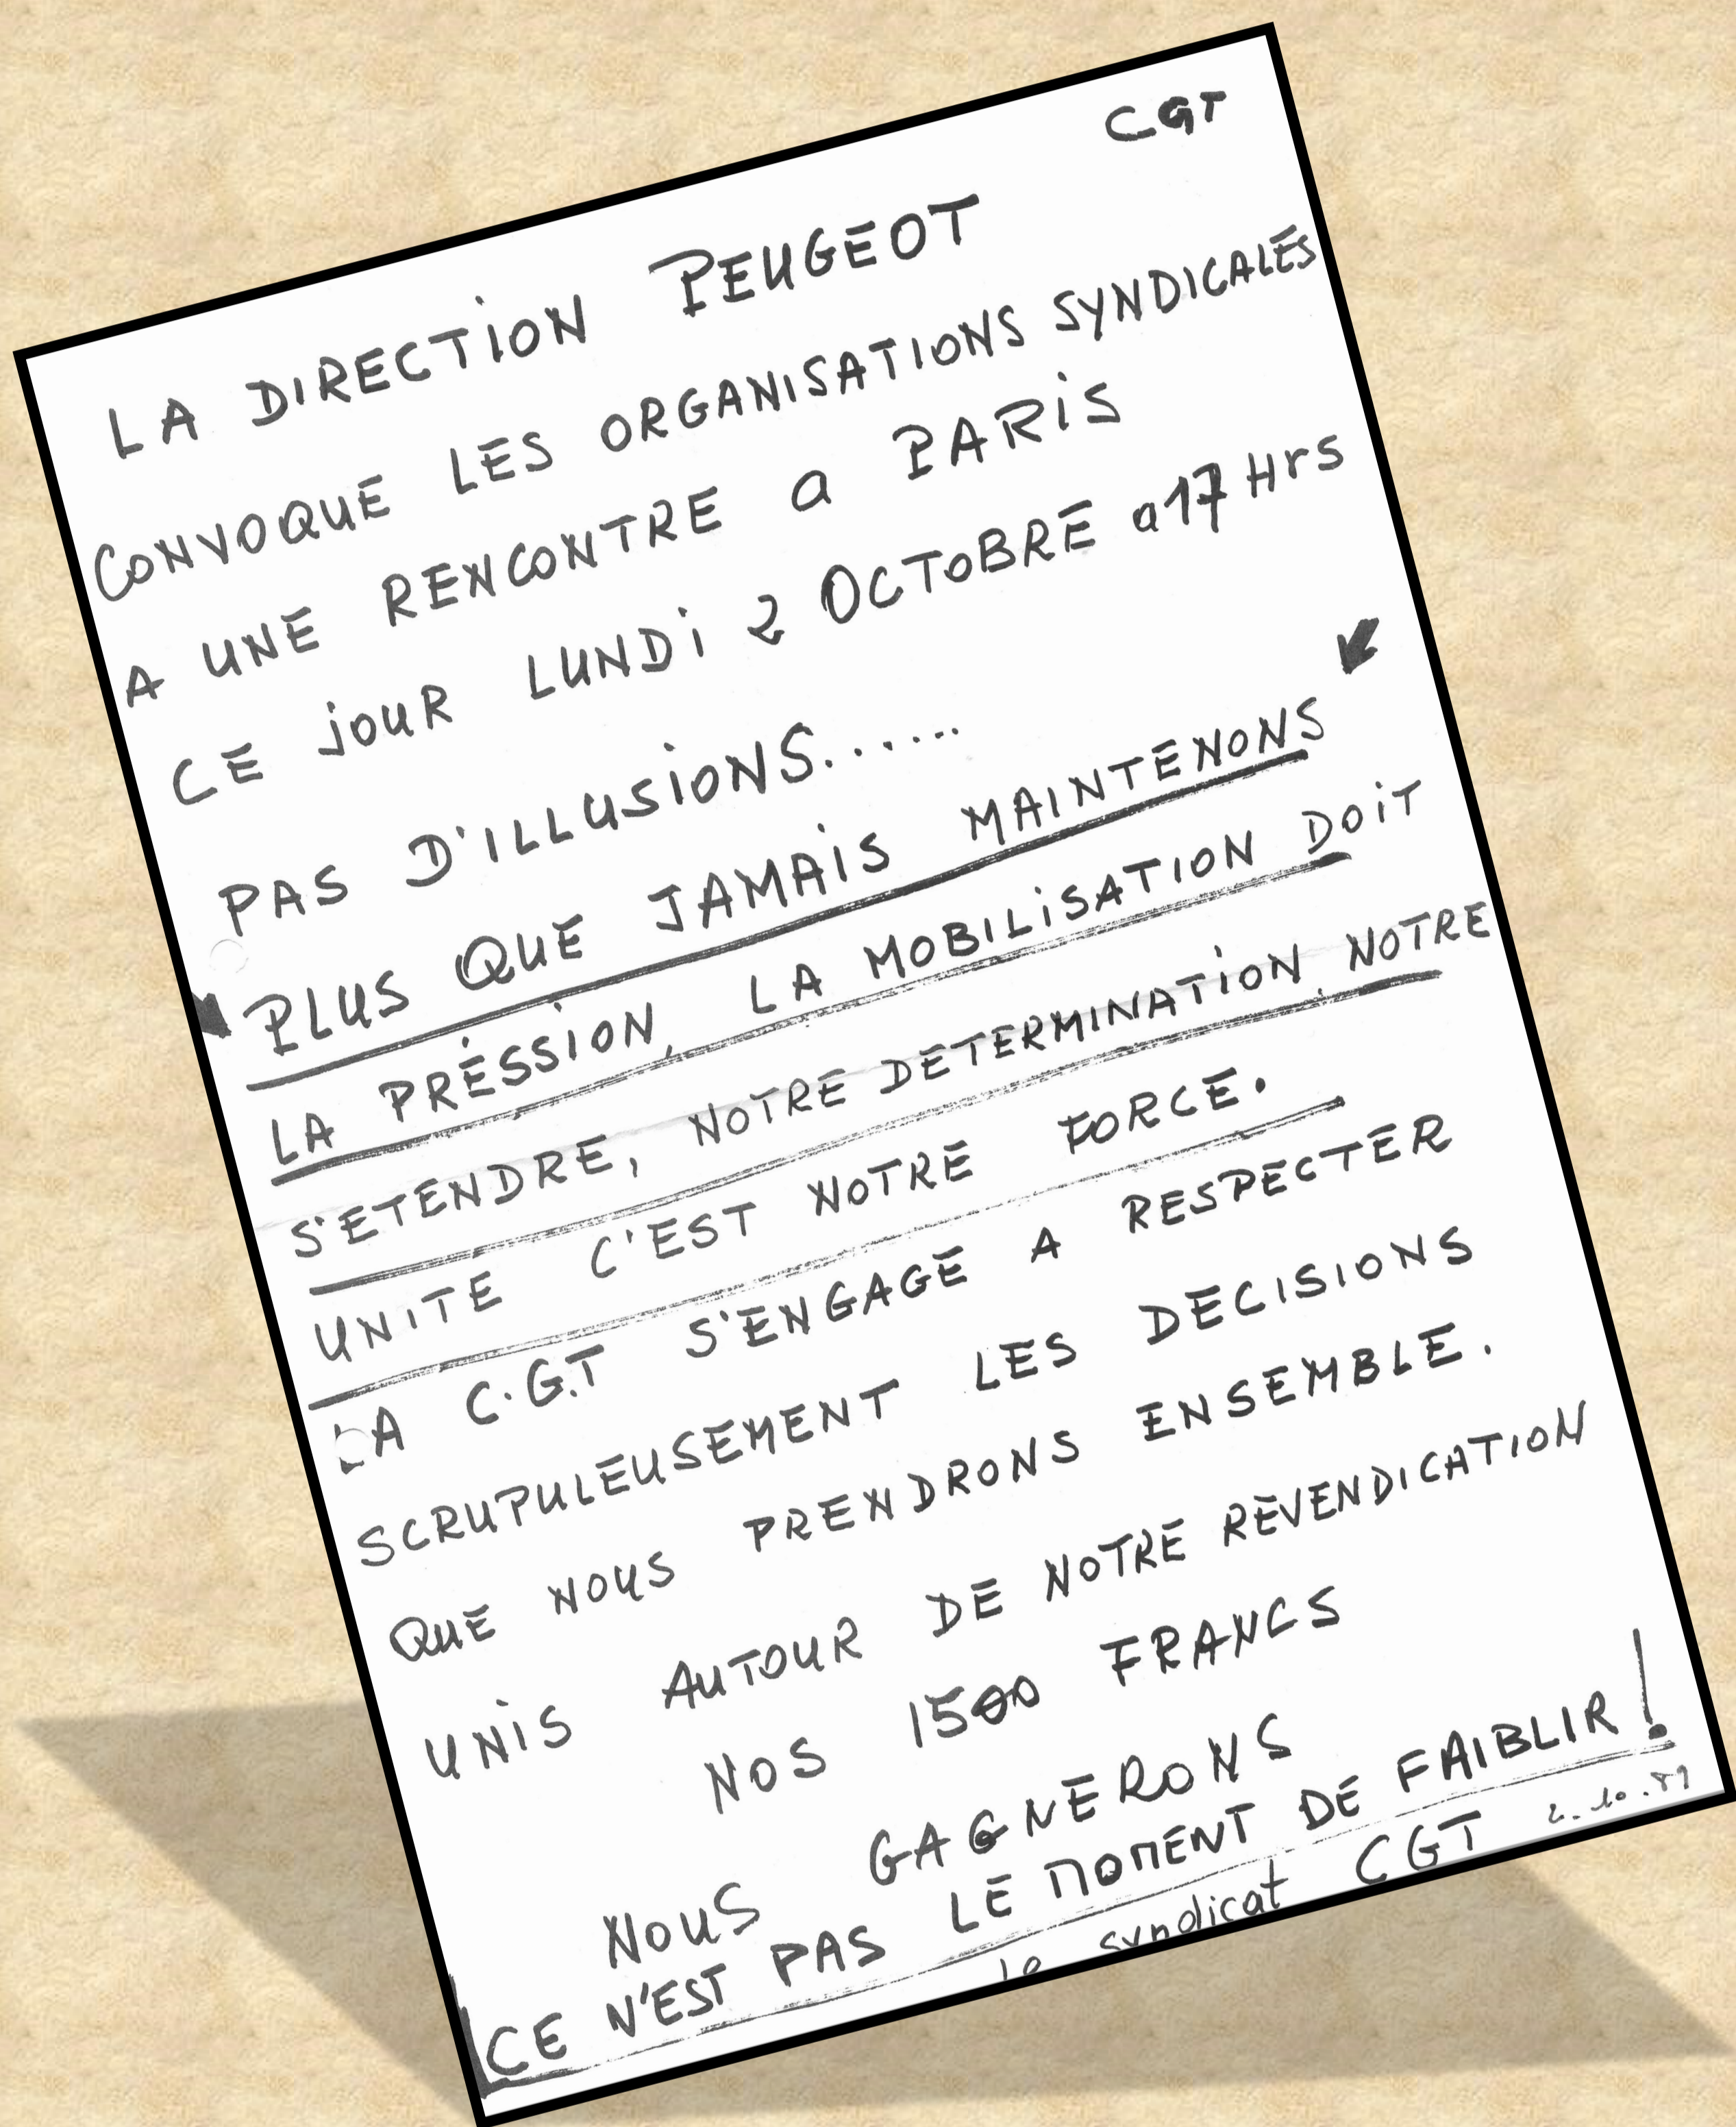 CGT
LA DIRECTION PEUGEOT
CONVOQUE LES ORGANISATIONS SYNDICALES
A UNE RENCONTRE a PARIS
CE jOUR LUNDI 2 OCTOBRE a 17 Hrs
PAS D'ILLUSIONS......
PLUS QUE JAMAIS MAINTENONS
LA PRÉSSION, LA MOBILISATION DOIT
S'ETENDRE, NOTRE DETERMINATION, NOTRE
UNITE C'EST NOTRE FORCE.
LA C.G.T S'ENGAGE A RESPECTER
SCRUPULEUSEMENT LES DECISIONS
QUE NOUS PRENDRONS ENSEMBLE.
UNIS AUTOUR DE NOTRE REVENDICATION
NOS 1500 FRANCS
NOUS GAGNERONS
CE N'EST PAS LE MOMENT DE FAIBLIR!
le syndicat CGT 2.10.89